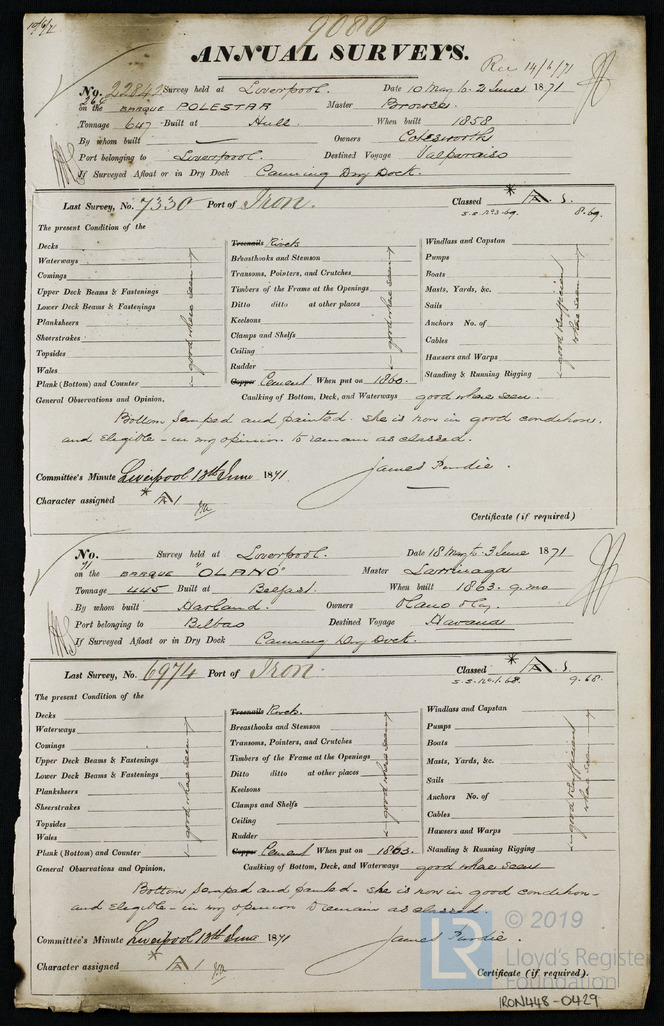 10/6/71
9080
ANNUAL SURVEYS.
Rec 14/6/71
No. 22842 Survey held at Liverpool. Date 10 May to 2 June 1871
on the BARQUE POLESTAR Master
Tonnage 647 Built at Hull When built 1858
By whom built — Owners Colesworth
Port belonging to Liverpool. Destined Voyage Valparaiso
If Surveyed Afloat or in Dry Dock Canning Dry Dock.
Last Survey, No. 7330 Port of Iron. Classed * A. 1.
S.S. No 3-69. 8.69.
The present Condition of the
Decks
Waterways
Comings
Upper Deck Beams & Fastenings
Lower Deck Beams & Fastenings
Planksheers
Sheerstrakes
Topsides
Wales
Plank (Bottom) and Counter
good where seen
Treenails Rivets
Breasthooks and Stemson
Transoms, Pointers, and Crutches
Timbers of the Frame at the Openings
Ditto ditto at other places
Keelsons
Clamps and Shelfs
Ceiling
Rudder
Copper Cement When put on 1860.
good where seen
Windlass and Capstan
Pumps
Boats
Masts, Yards, &c.
Sails
Anchors No. of
Cables
Hawsers and Warps
Standing & Running Rigging
good & efficient
where seen
General Observations and Opinion, Caulking of Bottom, Deck, and Waterways good where seen.
Bottom scraped and painted. She is now in good condition.
and Eligible - in my opinion to remain as classed.
James Purdie.
Committee's Minute Liverpool 13th June 1871
Character assigned * A 1
Certificate (if required)
No. Survey held at Liverpool. Date 18 May to 3 June 1871
71
on the BARQUE "OLANO" Master Larrinaga
Tonnage 445 Built at Belfast. When built 1863. 9. mo
By whom built Harland. Owners Olano & Co.
Port belonging to Bilbao Destined Voyage Havana
If Surveyed Afloat or in Dry Dock Canning Dry Dock.
Last Survey, No. 6974 Port of Iron. Classed * A. 1.
S.S. No. 1. 68. 9.68.
The present Condition of the
Decks
Waterways
Comings
Upper Deck Beams & Fastenings
Lower Deck Beams & Fastenings
Planksheers
Sheerstrakes
Topsides
Wales
Plank (Bottom) and Counter
good where seen
Treenails Rivets.
Breasthooks and Stemson
Transoms, Pointers, and Crutches
Timbers of the Frame at the Openings
Ditto ditto at other places
Keelsons
Clamps and Shelfs
Ceiling
Rudder
Copper Cement When put on 1863.
good where seen
Windlass and Capstan
Pumps
Boats
Masts, Yards, &c.
Sails
Anchors No. of
Cables
Hawsers and Warps
Standing & Running Rigging
good & efficient
where seen
General Observations and Opinion, Caulking of Bottom, Deck, and Waterways good where seen
Bottom scraped and painted - she is now in good condition -
and Eligible - in my opinion to remain as classed
James Purdie.
Committee's Minute Liverpool 13th June 1871
Character assigned * A 1
Certificate (if required).
LR © 2019
Lloyd's Register
Foundation
IRON448-0429